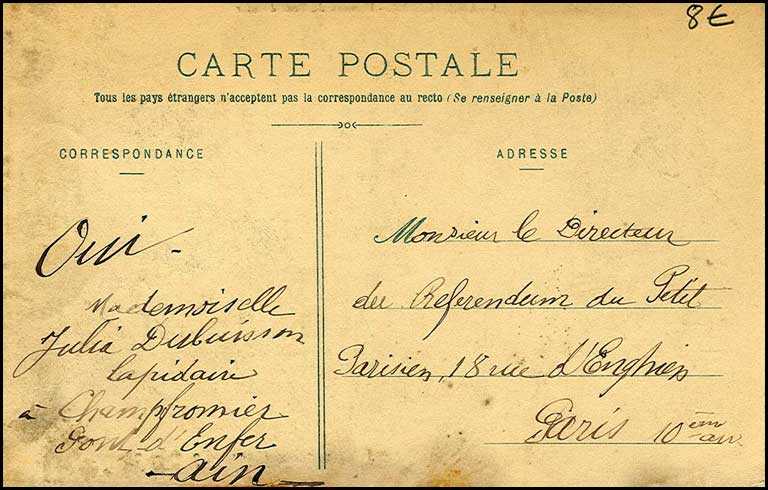 8€
CARTE POSTALE
Tous les pays étrangers n'acceptent pas la correspondance au recto (Se renseigner à la Poste)
CORRESPONDANCE
ADRESSE
Oui -
Mademoiselle
Julia Dubuisson
lapidaire
à Champfromier
Pont d'Enfer
- Ain -
Monsieur le Directeur
du Referendum du Petit
Parisien, 18 rue d'Enghien
Paris 10 em arr